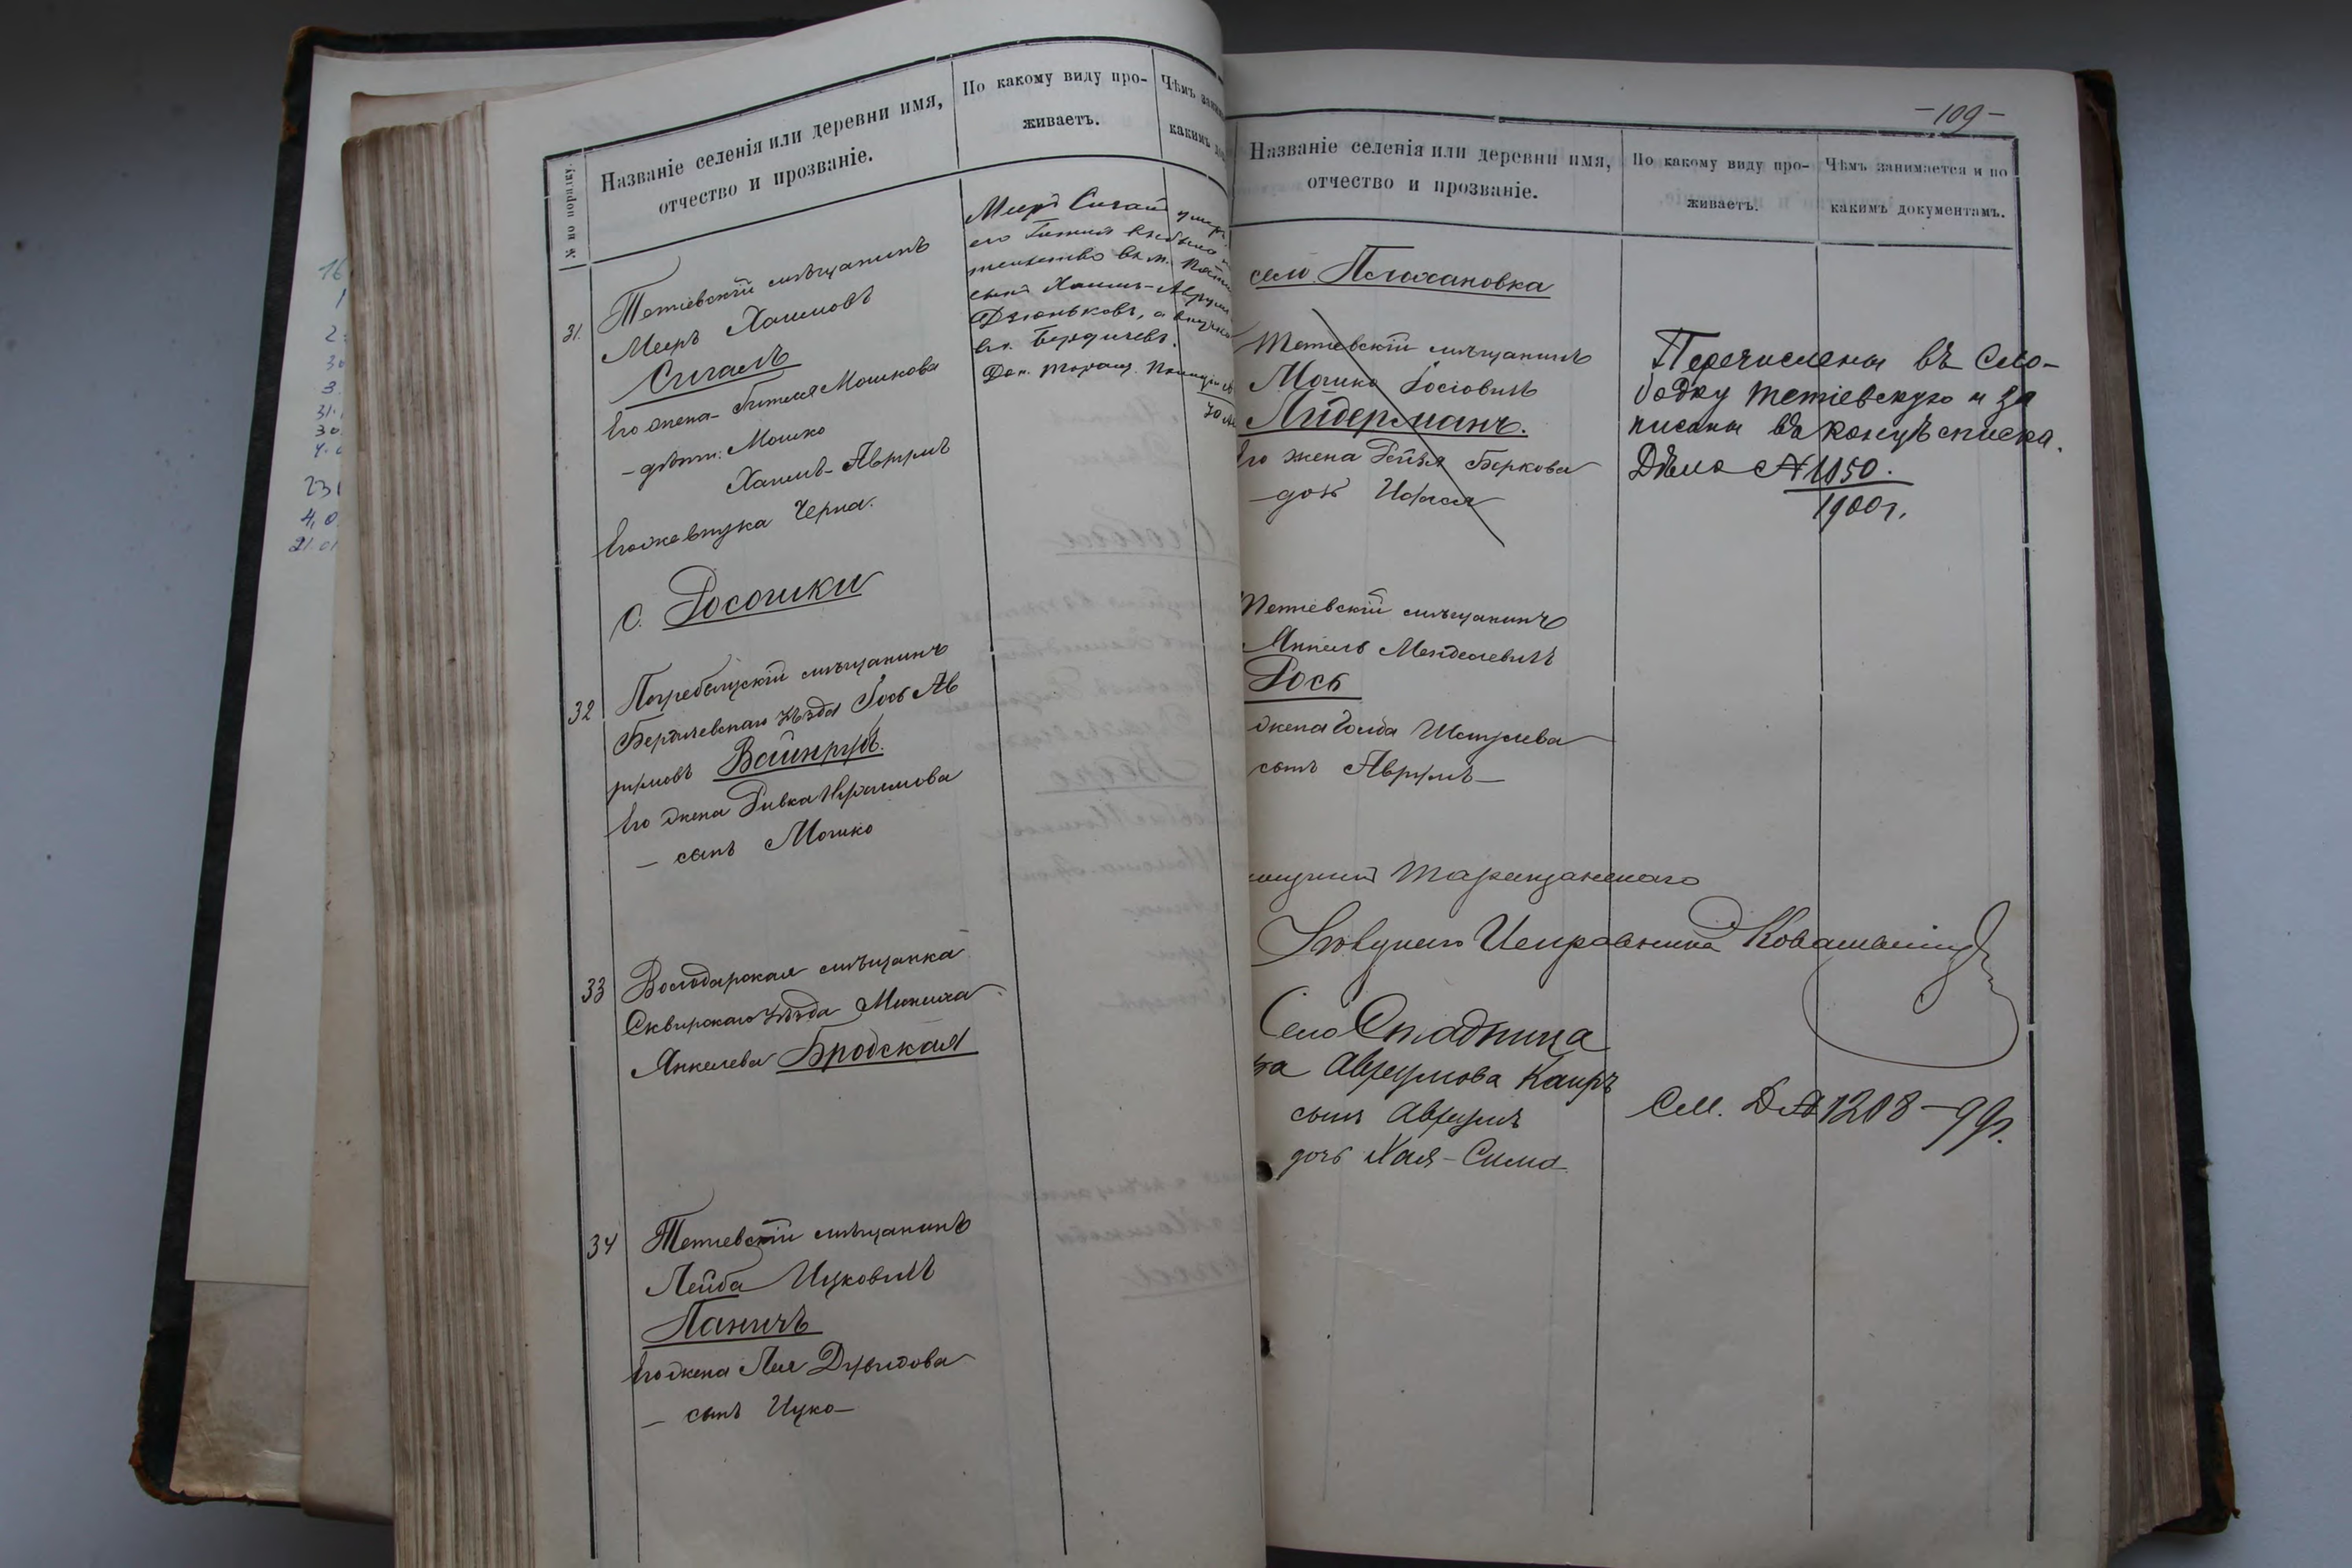 № по порядку
Названіе селенія или деревни имя,
отчество и прозваніе.
По какому виду про-
живаетъ.
Чѣмъ
какимъ
31.
Тетіевскій мѣщанинъ
Мееръ Хаимовъ
Сигалъ
Его жена Битля Мошкова
– дѣти: Мошко
Хаимъ-Аврумъ
Его же внучка Черна.
Мееръ Сигалъ умеръ,
его выбыла
сынъ Хаимъ-Аврумъ
Дзюньковъ, а внучка
въ Бердичевъ.
с. Росошки
32
Погребыщскій мѣщанинъ
Бердичевскаго уѣзда Іось Ав
румовъ Вайнрубъ.
Его жена Ривка Абрамова
– сынъ Мошко
33
Володарская мѣщанка
Сквирскаго уѣзда
Янкелева Бродская
34
Тетіевскій мѣщанинъ
Лейба Ицковичъ
Паничъ
Его жена Лея Дувидова
– сынъ Ицко –
– 109 –
Названіе селенія или деревни имя,
отчество и прозваніе.
По какому виду про-
живаетъ.
Чѣмъ занимается и по
какимъ документамъ.
село Плихановка
Тетіевскій мѣщанинъ
Мошко Іосіовичъ
Лидерманъ.
Его жена Рейзя Беркова
– дочь
Перечислены въ Сло-
бодку Тетіевскую и за
писаны въ концѣ списка.
Дѣло № 1050.
1900 г.
Тетіевскій мѣщанинъ
Янкель Менделевичъ
Рось
жена Голда Шмулева
сынъ Аврумъ –
Таращанскаго
Исправника
Село Стадница
Аврумова Каиръ
сынъ Аврумъ
дочь Хая-Сима
См. Д № 1208 – 99 г.